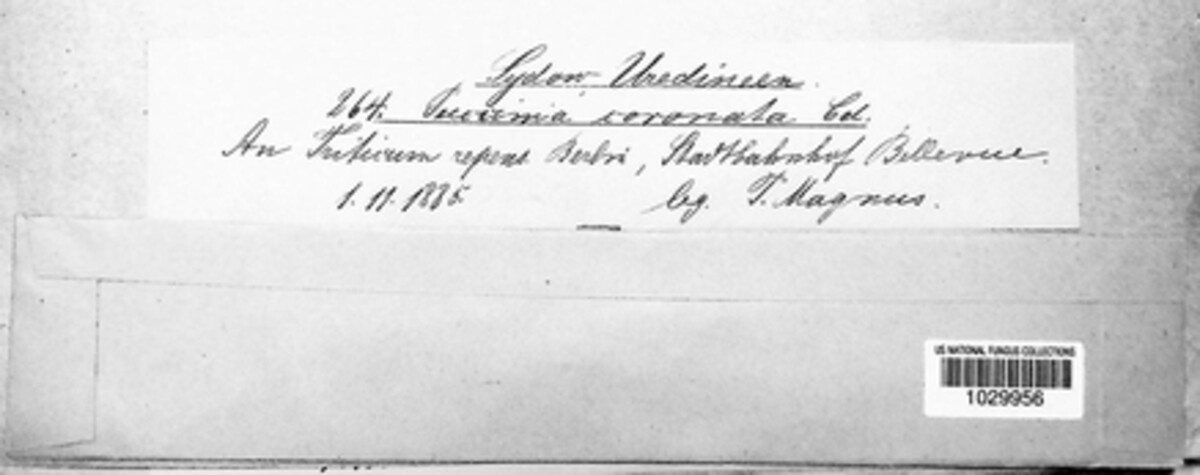 Sydow Uredineen.
264. Puccinia coronata Cd.
An Triticum repens Berlin, Stadtbahnhof Bellevue.
1. 11. 1885. leg. P. Magnus.
US NATIONAL FUNGUS COLLECTIONS
1029956